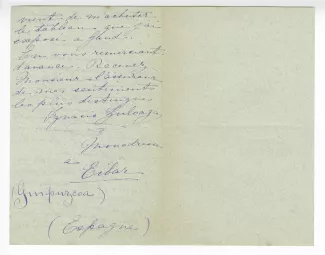 ment de m'acheter
les tableaux que j'ai
exposé à Gand.
En vous remerciant
d'avance. Recevez,
Monsieur l'assurance
de mes sentiments
les plus distingués
Ignacio Zuloaga
à
Eibar
(Guipuzcoa)
(Espagne)